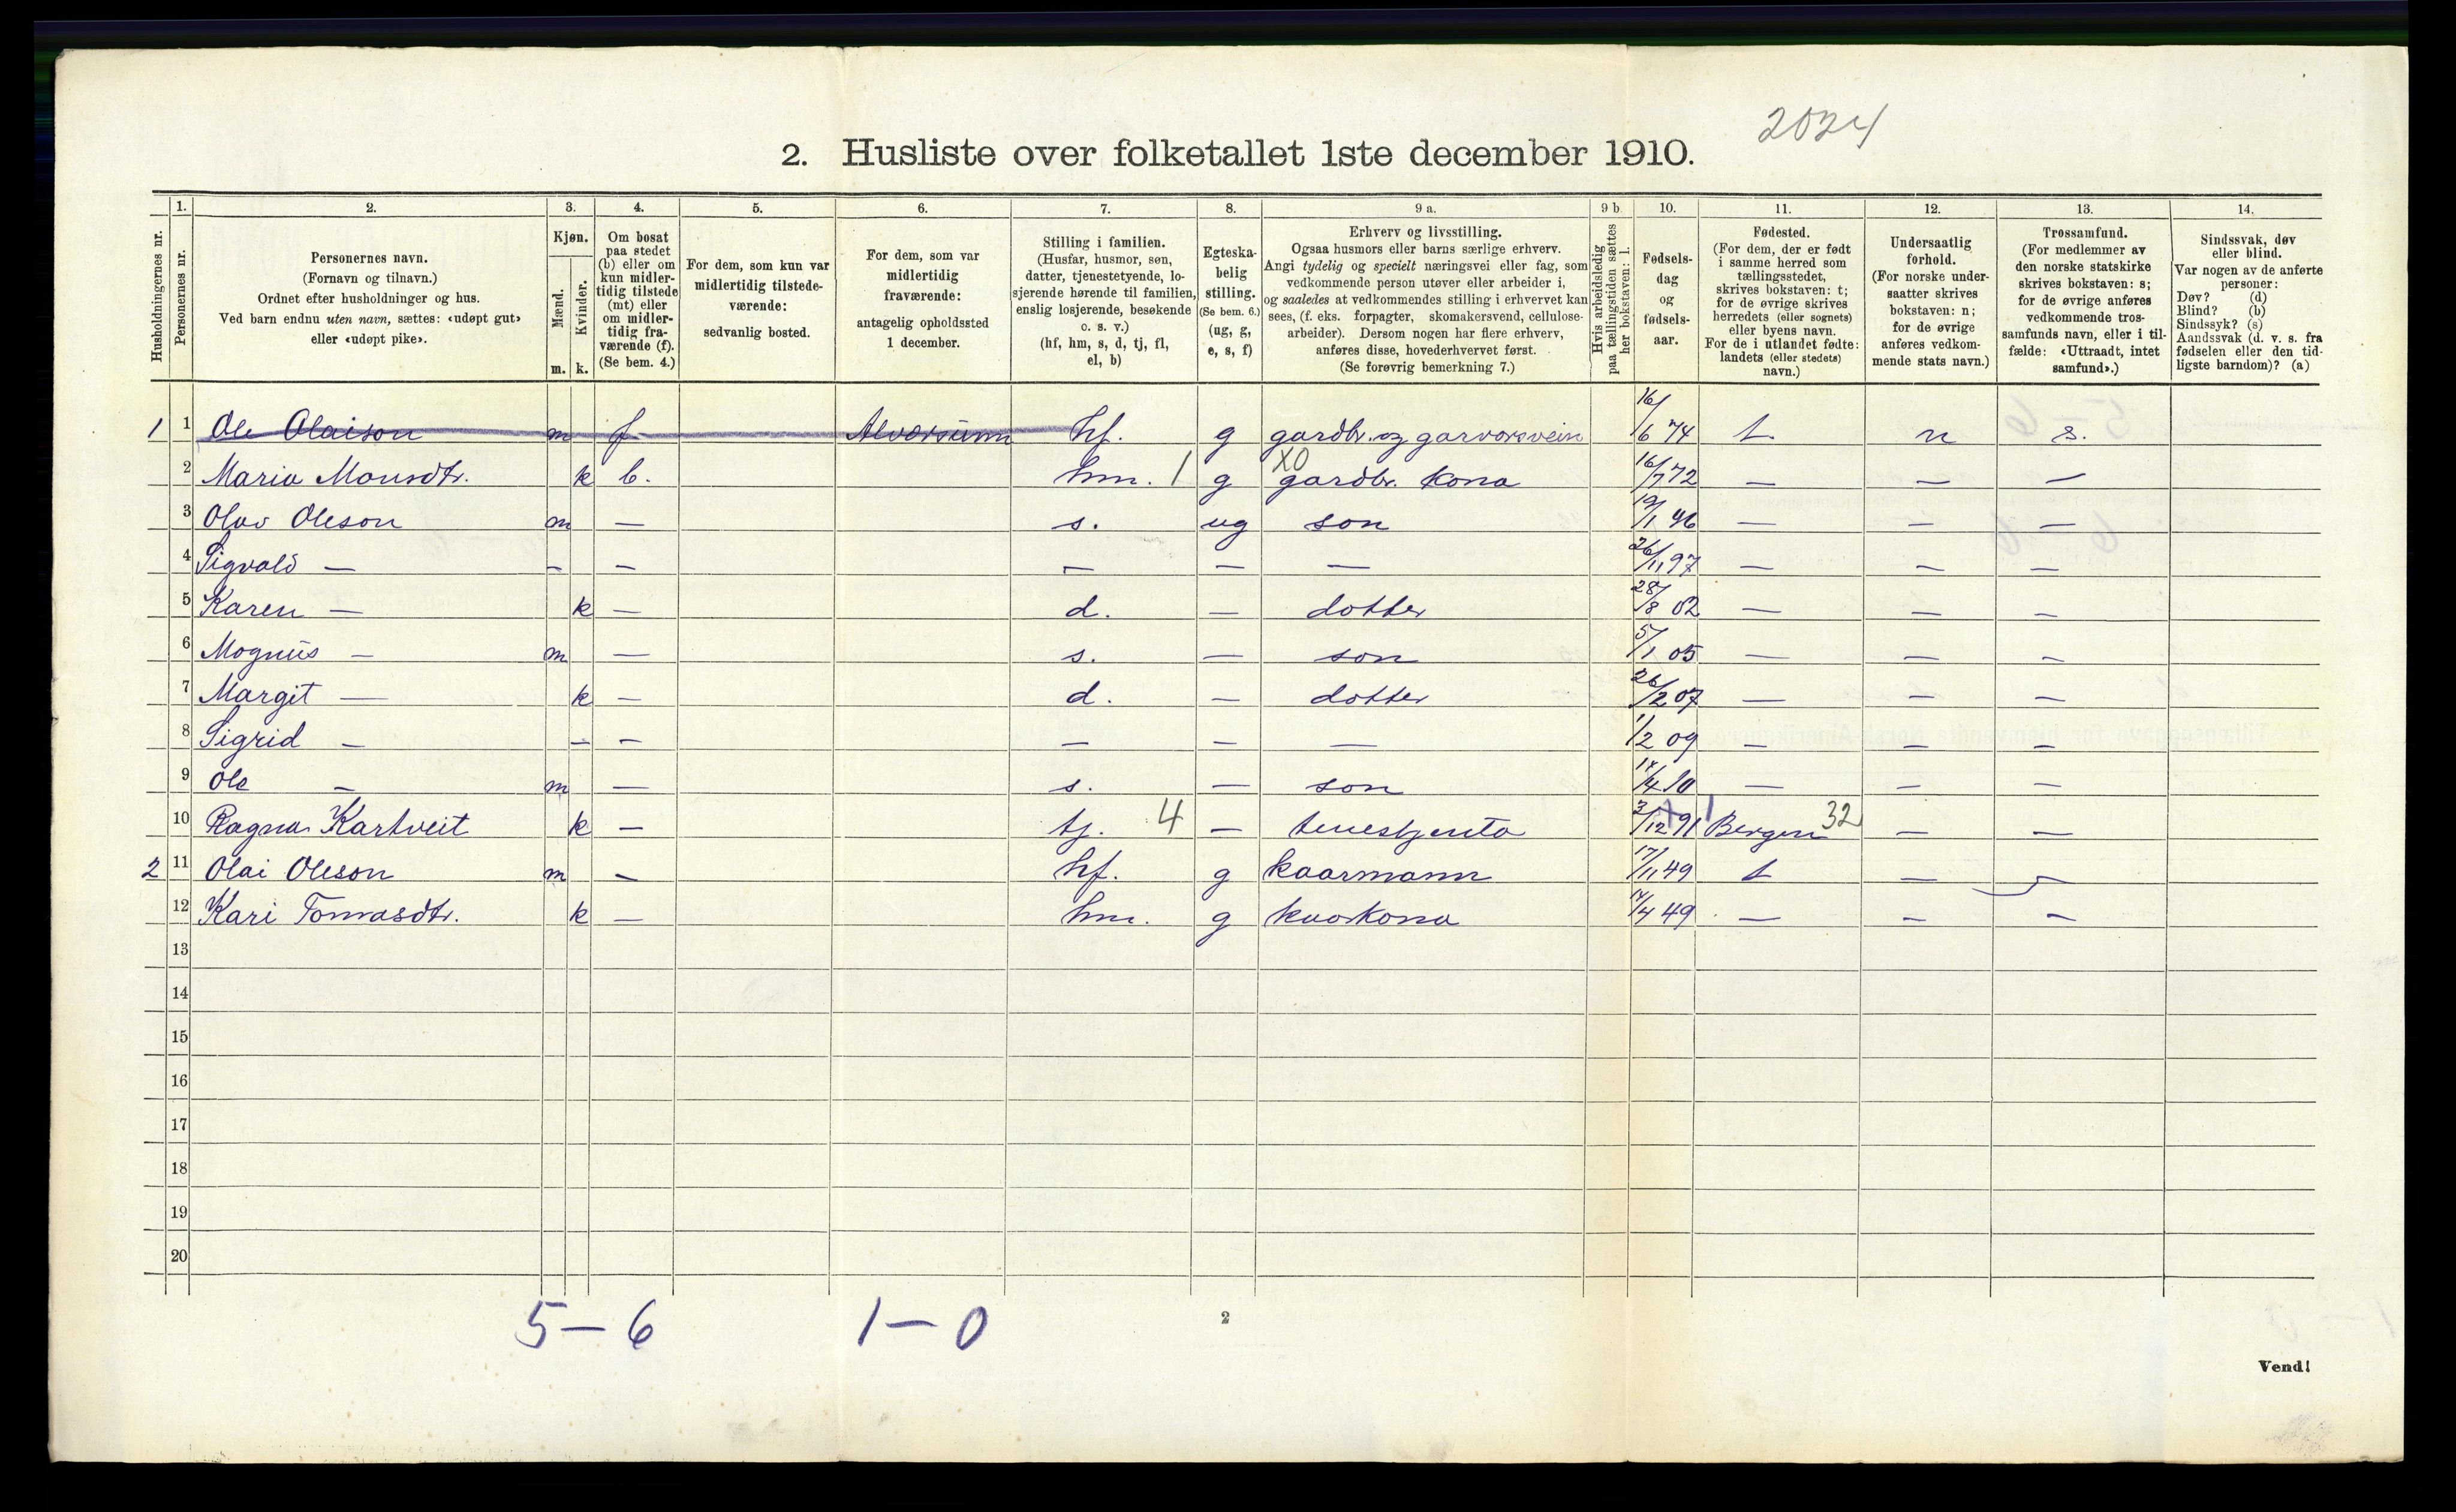 2024
2. Husliste over folketallet 1ste december 1910.
Husholdningernes nr.
1. Personernes nr.
2. Personernes navn. (Fornavn og tilnavn.) Ordnet efter husholdninger og hus. Ved barn endnu uten navn, sættes: «udøpt gut» eller «udøpt pike».
3. Kjøn. Mænd. m. Kvinder. k.
4. Om bosat paa stedet (b) eller om kun midlertidig tilstede (mt) eller om midlertidig fraværende (f). (Se bem. 4.)
5. For dem, som kun var midlertidig tilstedeværende: sedvanlig bosted.
6. For dem, som var midlertidig fraværende: antagelig opholdssted 1 december.
7. Stilling i familien. (Husfar, husmor, søn, datter, tjenestetyende, losjerende hørende til familien, enslig losjerende, besøkende o. s. v.) (hf, hm, s, d, tj, fl, el, b)
8. Egteskabelig stilling. (Se bem. 6.) (ug, g, e, s, f)
9 a. Erhverv og livsstilling. Ogsaa husmors eller barns særlige erhverv. Angi tydelig og specielt næringsvei eller fag, som vedkommende person utøver eller arbeider i, og saaledes at vedkommendes stilling i erhvervet kan sees, (f. eks. forpagter, skomakersvend, cellulosearbeider). Dersom nogen har flere erhverv, anføres disse, hovederhvervet først. (Se forøvrig bemerkning 7.)
9 b. Hvis arbeidsledig paa tællingstiden sættes her bokstaven: l.
10. Fødselsdag og fødselsaar.
11. Fødested. (For dem, der er født i samme herred som tællingsstedet, skrives bokstaven: t; for de øvrige skrives herredets (eller sognets) eller byens navn. For de i utlandet fødte: landets (eller stedets) navn.)
12. Undersaatlig forhold. (For norske undersaatter skrives bokstaven: n; for de øvrige anføres vedkommende stats navn.)
13. Trossamfund. (For medlemmer av den norske statskirke skrives bokstaven: s; for de øvrige anføres vedkommende trossamfunds navn, eller i tilfælde: «Uttraadt, intet samfund».)
14. Sindssvak, døv eller blind. Var nogen av de anførte personer: Døv? (d) Blind? (b) Sindssyk? (s) Aandssvak (d. v. s. fra fødselen eller den tidligste barndom)? (a)
1 1 Ole Olaison m f Alversund hf. g gardbr. og garvarsvein 16/6 74 t. n s.
2 Maria Monsdtr. k b. hm. 1 g XO gardbr. kona 16/7 72 — — —
3 Olav Oleson m — s. ug son 19/1 96 — — —
4 Sigvald — — — — — — 26/11 97 — — —
5 Karen — k — d. — dotter 28/8 02 — — —
6 Magnus — m — s. — son 5/1 05 — — —
7 Margit — k — d. — dotter 26/2 07 — — —
8 Sigrid — — — — — — 1/2 09 — — —
9 Ole — m — s. — son 14/4 10 — — —
10 Ragna Kartveit k — tj. 4 — tenestjenta 3/12 91 Bergen 32 — —
2 11 Olai Oleson m — hf. g kaarmann 17/11 49 t — —
12 Kari Tomasdtr. k — hm. g kaarkona 14/4 49 — — —
13
14
15
16
17
18
19
20
5 — 6 1 — 0
2
Vend!